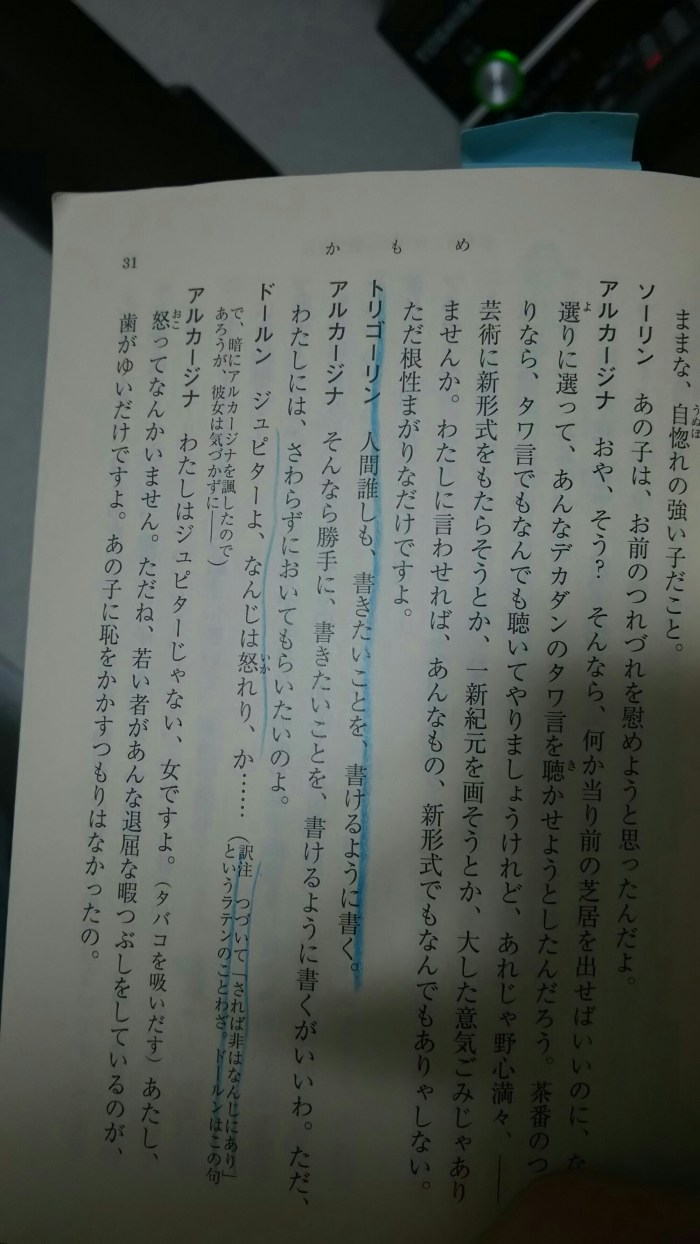 かもめ
31
ままな、自惚れの強い子だこと。
ソーリン　あの子は、お前のつれづれを慰めようと思ったんだよ。
アルカージナ　おや、そう？　そんなら、何か当り前の芝居を出せばいいのに、
選りに選って、あんなデカダンのタワ言を聴かせようとしたんだろう。茶番のつ
りなら、タワ言でもなんでも聴いてやりましょうけれど、あれじゃ野心満々、――
芸術に新形式をもたらそうとか、一新紀元を画そうとか、大した意気ごみじゃあり
ませんか。わたしに言わせれば、あんなもの、新形式でもなんでもありゃしない。
ただ根性まがりなだけですよ。
トリゴーリン　人間誰しも、書きたいことを、書けるように書く。
アルカージナ　そんなら勝手に、書きたいことを、書けるように書くがいいわ。ただ、
わたしには、さわらずにおいてもらいたいのよ。
ドールン　ジュピターよ、なんじは怒れり、か……（訳注　つづいて「されば非はなんじにあり」
というラテンのことわざ。ドールンはこの句
で、暗にアルカージナを諷したので
あろうが、彼女は気づかずに――）
アルカージナ　わたしはジュピターじゃない、女ですよ。（タバコを吸いだす）あたし、
怒ってなんかいません。ただね、若い者があんな退屈な暇つぶしをしているのが、
歯がゆいだけですよ。あの子に恥をかかすつもりはなかったの。